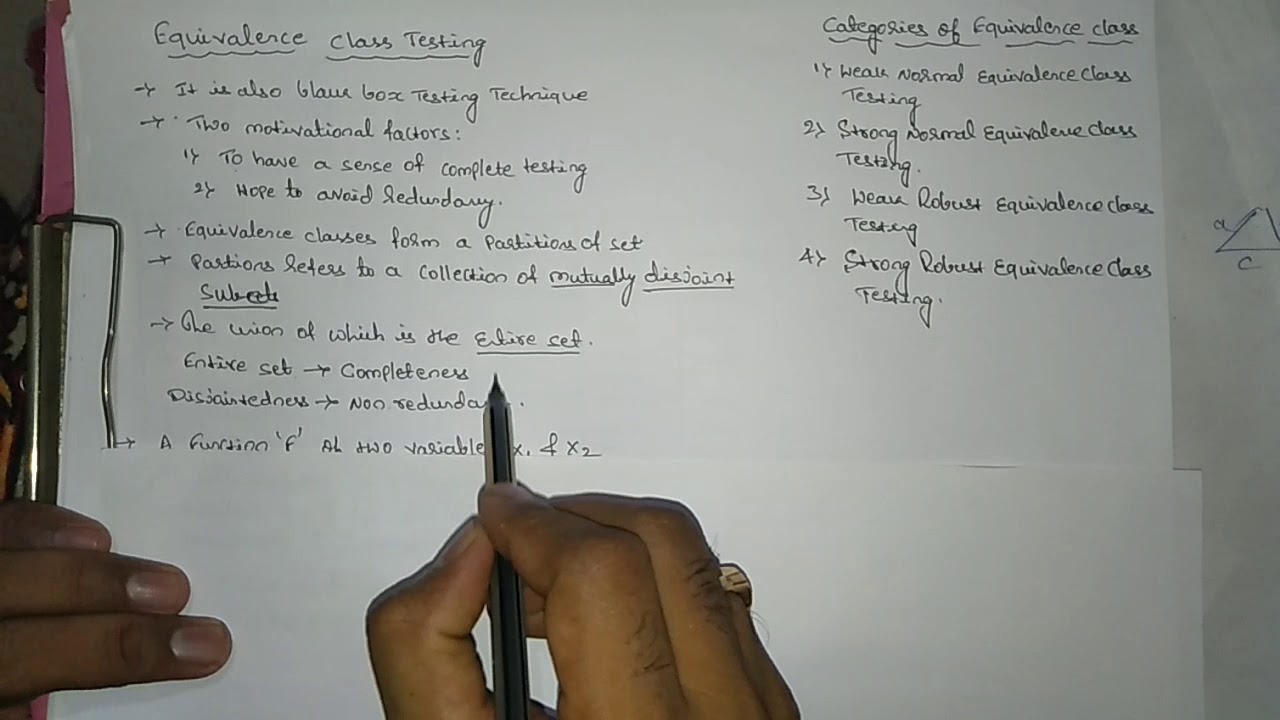 Equivalence Class Testing
→ It is also black box Testing Technique
→ Two motivational factors:
1) To have a sense of complete testing
2) Hope to avoid Redundancy.
→ Equivalence classes form a partitions of set
→ Partions Refers to a collection of mutually disjoint
Subsets
→ The union of which is the Entire set.
Entire set → Completeness
Disjointedness → Non redundancy.
→ A function 'F' two variable x₁ & x₂
Categories of Equivalence class
1) Weak Normal Equivalence Class
Testing
2) Strong Normal Equivalence Class
Testing.
3) Weak Robust Equivalence class
Testing
4) Strong Robust Equivalence Class
Testing.
a
c